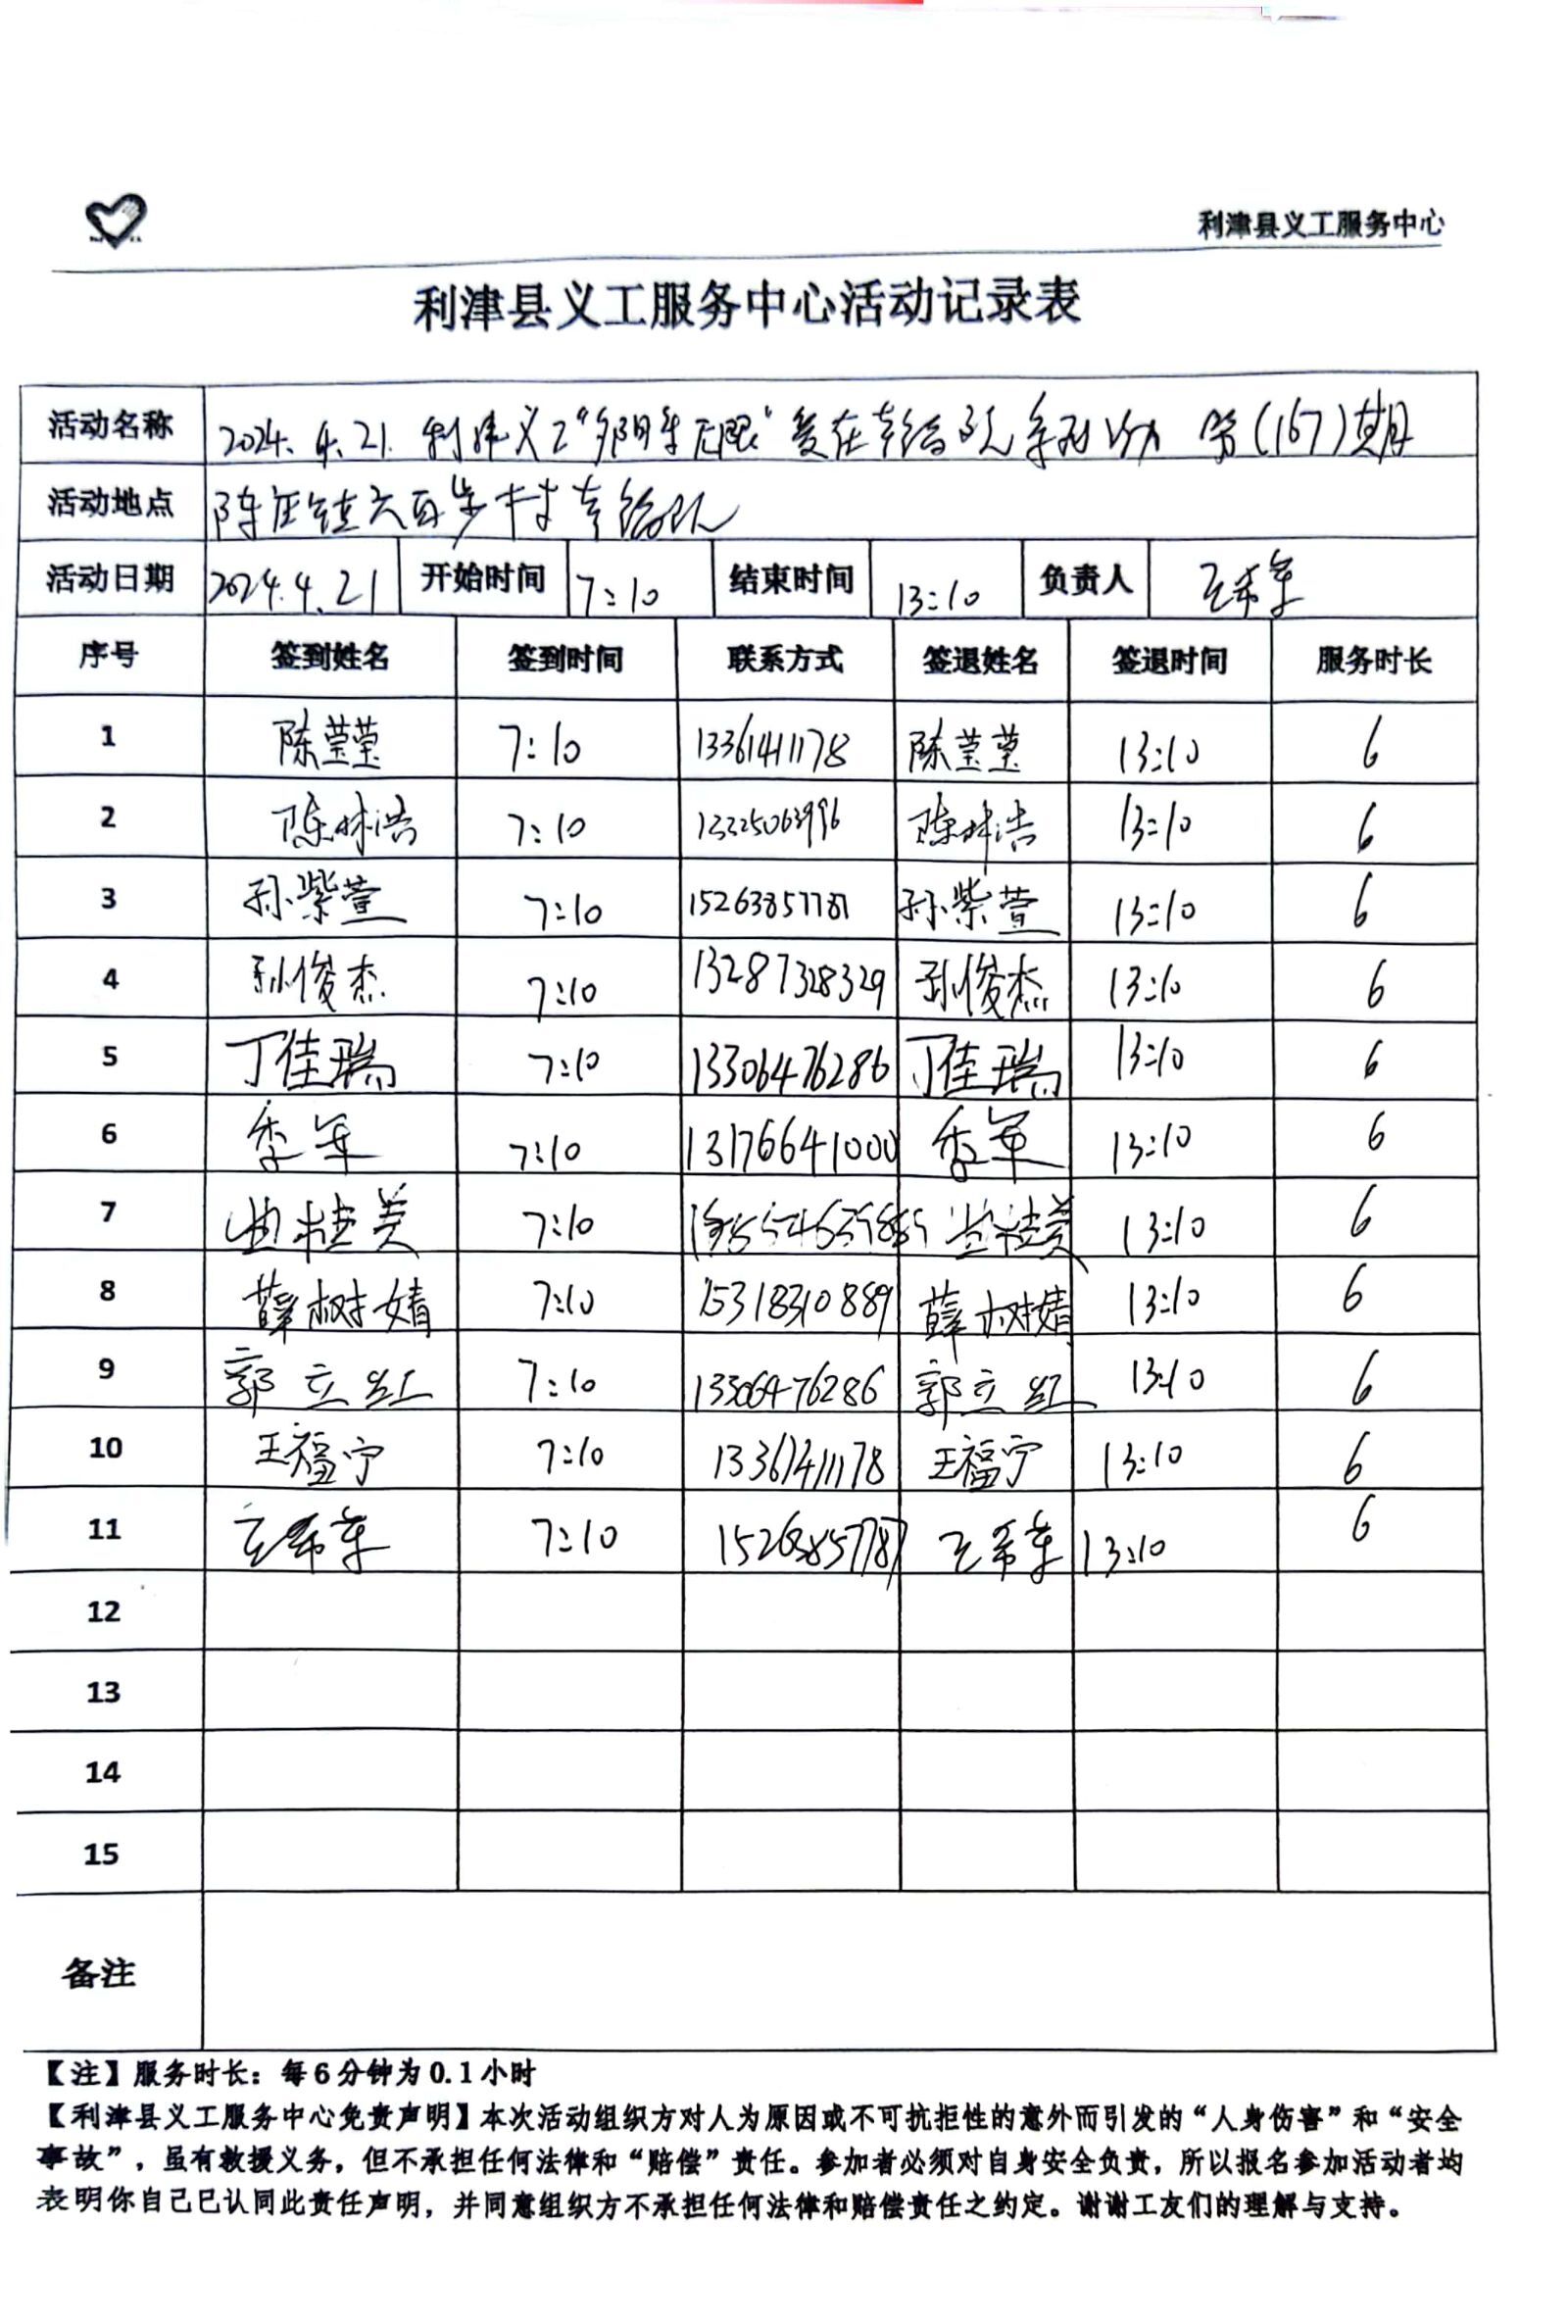 利津县义工服务中心
利津县义工服务中心活动记录表
活动名称 2024.4.21. 利津义工“夕阳年无限”爱在幸福院系列活动 第(167)期
活动地点 陈庄镇六百步村幸福院
活动日期 2024.4.21 开始时间 7:10 结束时间 13:10 负责人
序号 签到姓名 签到时间 联系方式 签退姓名 签退时间 服务时长
1 陈莹莹 7:10 13361411178 陈莹莹 13:10 6
2 陈林浩 7:10 13325063996 陈林浩 13:10 6
3 孙紫萱 7:10 15263857787 孙紫萱 13:10 6
4 孙俊杰 7:10 13287328329 孙俊杰 13:10 6
5 丁佳瑞 7:10 13306476286 丁佳瑞 13:10 6
6 季军 7:10 13176641000 季军 13:10 6
7 曲桂美 7:10 曲桂美 13:10 6
8 薛树婧 7:10 15318310889 薛树婧 13:10 6
9 郭立红 7:10 13306476286 郭立红 13:10 6
10 王福宁 7:10 13361411178 王福宁 13:10 6
11 7:10 15263857787 13:10 6
12
13
14
15
备注
【注】服务时长：每6分钟为0.1小时
【利津县义工服务中心免责声明】本次活动组织方对人为原因或不可抗拒性的意外而引发的“人身伤害”和“安全
事故”，虽有救援义务，但不承担任何法律和“赔偿”责任。参加者必须对自身安全负责，所以报名参加活动者均
表明你自己已认同此责任声明，并同意组织方不承担任何法律和赔偿责任之约定。谢谢工友们的理解与支持。